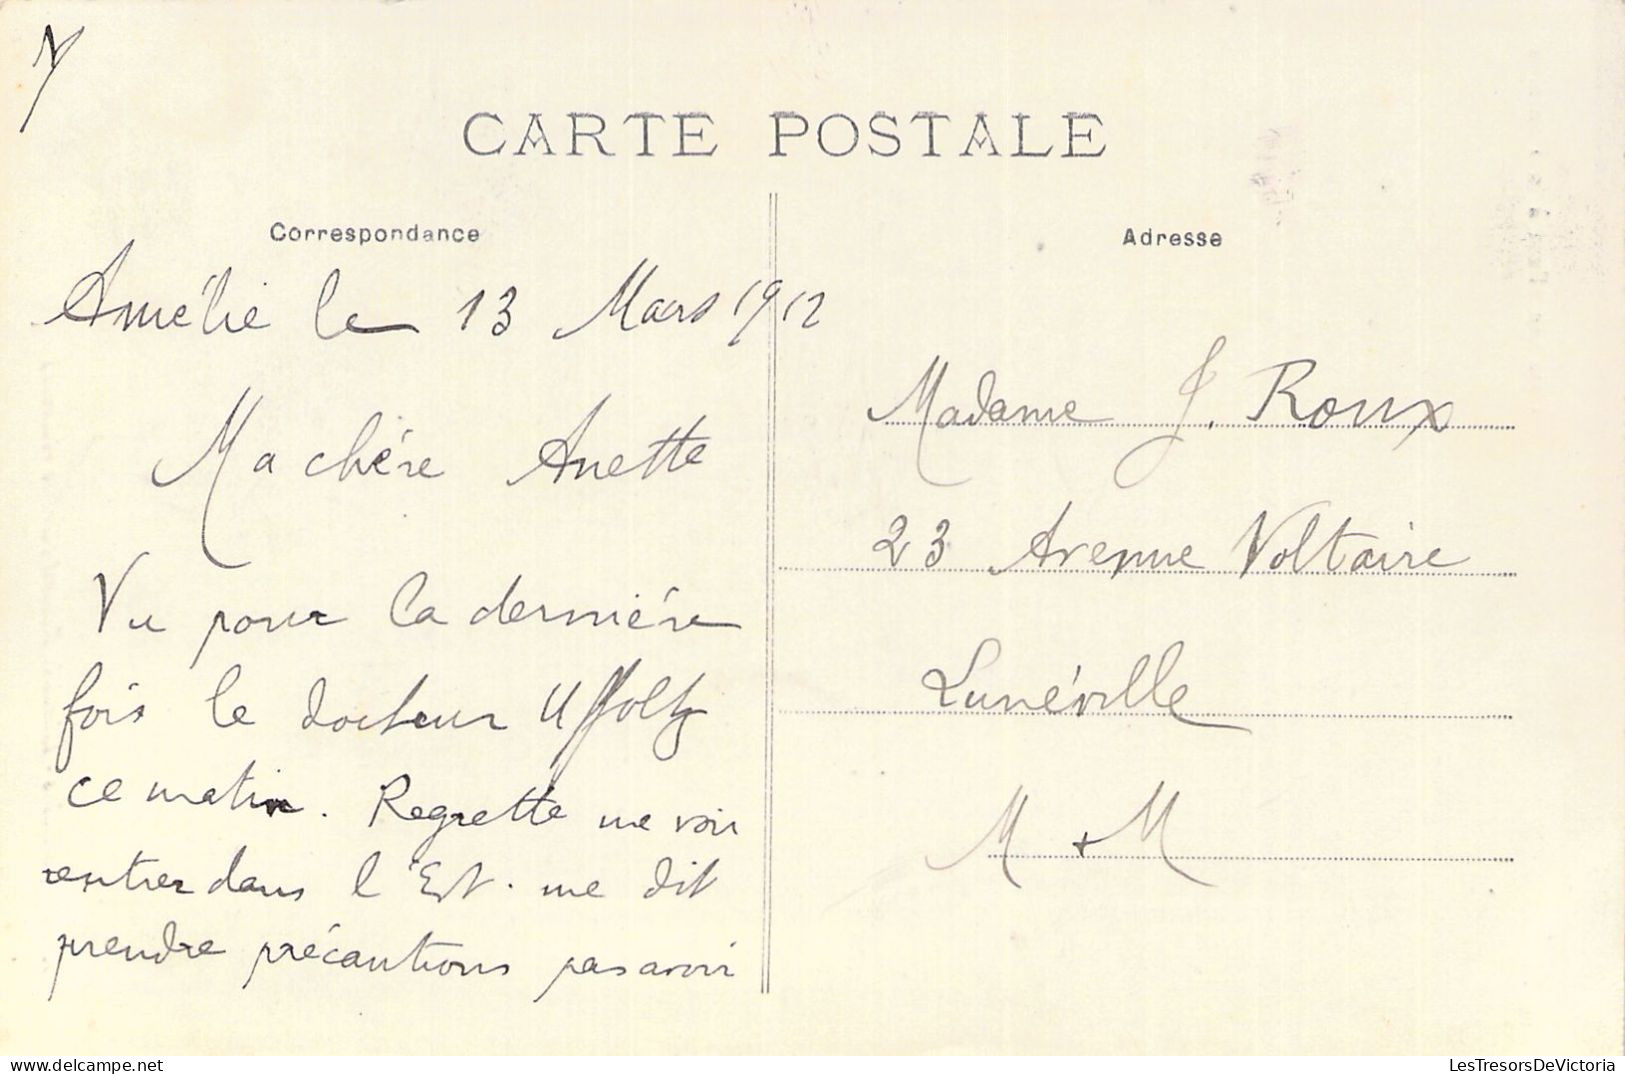 CARTE POSTALE
Correspondance
Amélie le 13 Mars 1912
Ma chére Anette
Vu pour la derniére
fois le docteur Uffoltz
ce matin. Regrette me voir
rentrer dans l'Est. me dit
prendre précautions pas avoir
Adresse
Madame J. Roux
23 Avenue Voltaire
Lunéville
M + M
LesTresorsDeVictoria